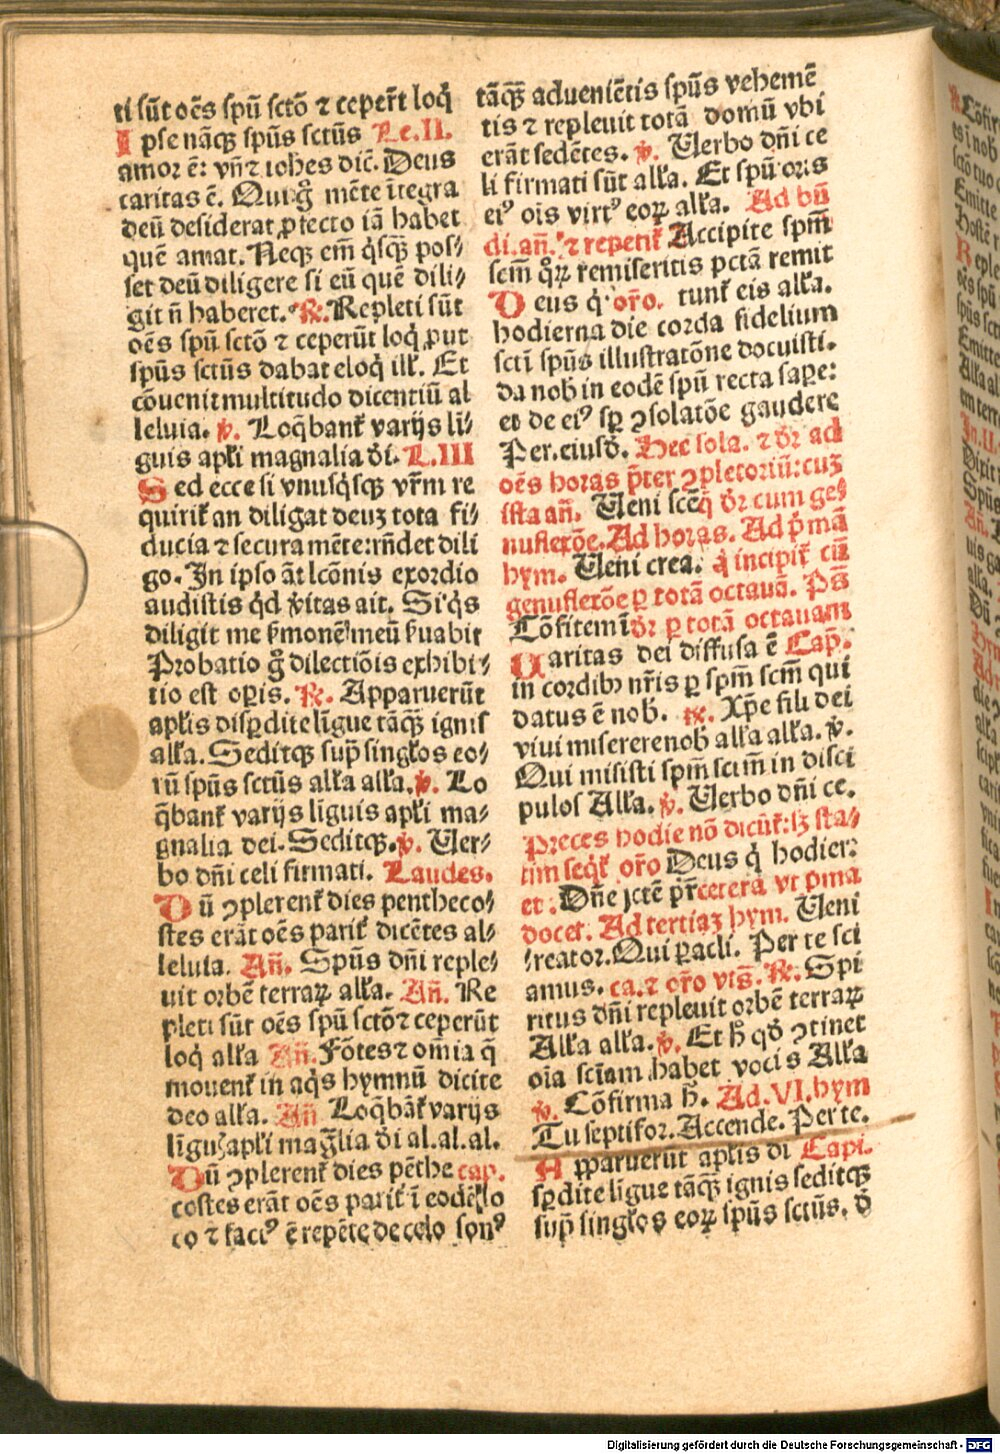 ti sūt oēs spū sctō ⁊ ceper̄t loq̄
Ipse nāqꝫ spūs sctūs Le.II.
amor ē: vn̄ ⁊ iohes dic̄. Deus
caritas ē. Qui gͦ mēte ītegra
deū desiderat ꝓfecto iā habet
quē amat. Neqꝫ em̄ q̄sqꝫ pos⸗
set deū diligere si eū quē dili⸗
git n̄ haberet. ℟. Repleti sūt
oēs spū sctō ⁊ ceperūt loq̄ ꝓut
spūs sctūs dabat eloq̄ ill̄. Et
cōuenit multitudo dicentiū al
leluia. ℣. Loq̄bant̄ varijs li⸗
guis apl̄i magnalia d̄i. L.III
Sed ecce si vnusq̄sqꝫ vr̄m re
quirit̄ an diligat deuꝫ tota fi⸗
ducia ⁊ secura mēte: rn̄det dili
go. In ipso āt lcōnis exordio
audistis qd̄ v̄itas ait. Si q̄s
diligit me s̄monē meū s̄uabit
Probatio gͦ dilectiōis exhibi⸗
tio est oꝑis. ℟. Apparuerūt
apl̄is disꝑdite līgue tāqꝫ ignis
all̄a. Seditqꝫ sup̄ singl̄os eo⸗
rū spūs sctūs all̄a all̄a. ℣. Lo
q̄bant̄ varijs līguis apl̄i ma⸗
gnalia dei. Seditqꝫ. ℣. Uer⸗
bo dn̄i celi firmati. Laudes.
Dū ꝯplerent̄ dies pentheco⸗
stes erāt oēs parit̄ dicētes al⸗
leluia. Añ. Spūs dn̄i reple⸗
uit orbē terraꝝ all̄a. Añ. Re
pleti sūt oēs spū sctō ⁊ ceperūt
loq̄ all̄a Añ. Fōtes ⁊ om̄ia q̄
mouent̄ in aq̄s hymnū dicite
deo all̄a. Añ Loq̄bāt̄ varijs
līguꝫ apl̄i mag̅lia d̄i al.al.al.
Dū ꝯplerent̄ dies pēthe cap.
costes erāt oēs parit̄ ī eodē lo
co ⁊ factꝰ ē repēte de celo sonꝰ
tāqꝫ̄ adueniētis spūs vehemē
tis ⁊ repleuit totā domū vbi
erāt sedētes. ℣. Uerbo dn̄i ce
li firmati sūt all̄a. Et spū oris
eiꝰ ois virtꝰ eoꝝ all̄a. Ad bn̄
di. añ. ⁊ repetit̄ Accipite spm̄
scm̄ qͦꝝ remiseritis pctā remit
Deus q̄ or̄o. tunt̄ eis all̄a.
hodierna die corda fidelium
scti spūs illustratōne docuisti.
da nob̄ in eodē spū recta saꝑe:
et de eiꝰ sꝑ ꝯsolatōe gaudere
Per. eiusd̄. Hec sola. ⁊ dr̄ ad
oēs horas p̄ter ꝯpletoriū: cuꝫ
ista añ. Ueni scē q̄ dr̄ cum ge⸗
nuflexōe. Ad horas. Ad p̄mā
hym. Ueni crea. q̄ incipit̄ cū
genuflexōe ꝑ totā octauā. Ps̄
Cōfitemī dr̄ ꝑ totā octauam
Caritas dei diffusa ē Cap̄.
in cordibꝫ nr̄is ꝑ spm̄ scm̄ qui
datus ē nob̄. ℟. Xp̄e fili dei
viui miserere nob̄ all̄a all̄a. ℣.
Qui misisti spm̄ sctm̄ in disci
pulos All̄a. ℣. Uerbo dn̄i ce.
Preces hodie nō dicūt̄: sꝫ sta⸗
tim seqt̄ or̄o Deus q̄ hodier:
et. Dn̄e sctē pr̄ cetera vt prima
docet. Ad tertiaꝫ hym. Ueni
creator. Qui ꝑacli. Per te sci
amus. ca. ⁊ or̄o vts̄. ℟. Spi
ritus dn̄i repleuit orbē terraꝝ
All̄a all̄a. ℣. Et h̄ qd̄ ꝯtinet
oīa sciam habet vocis All̄a
℣. Cōfirma h̄. Ad. VI. hym
Tu septifor. Accende. Per te.
Apparuerūt apl̄is di Capi.
sꝑdite līgue tāqꝫ ignis seditqꝫ
sup̄ singl̄os eoꝝ spūs sctūs. d̄
Digitalisierung gefördert durch die Deutsche Forschungsgemeinschaft - DFG